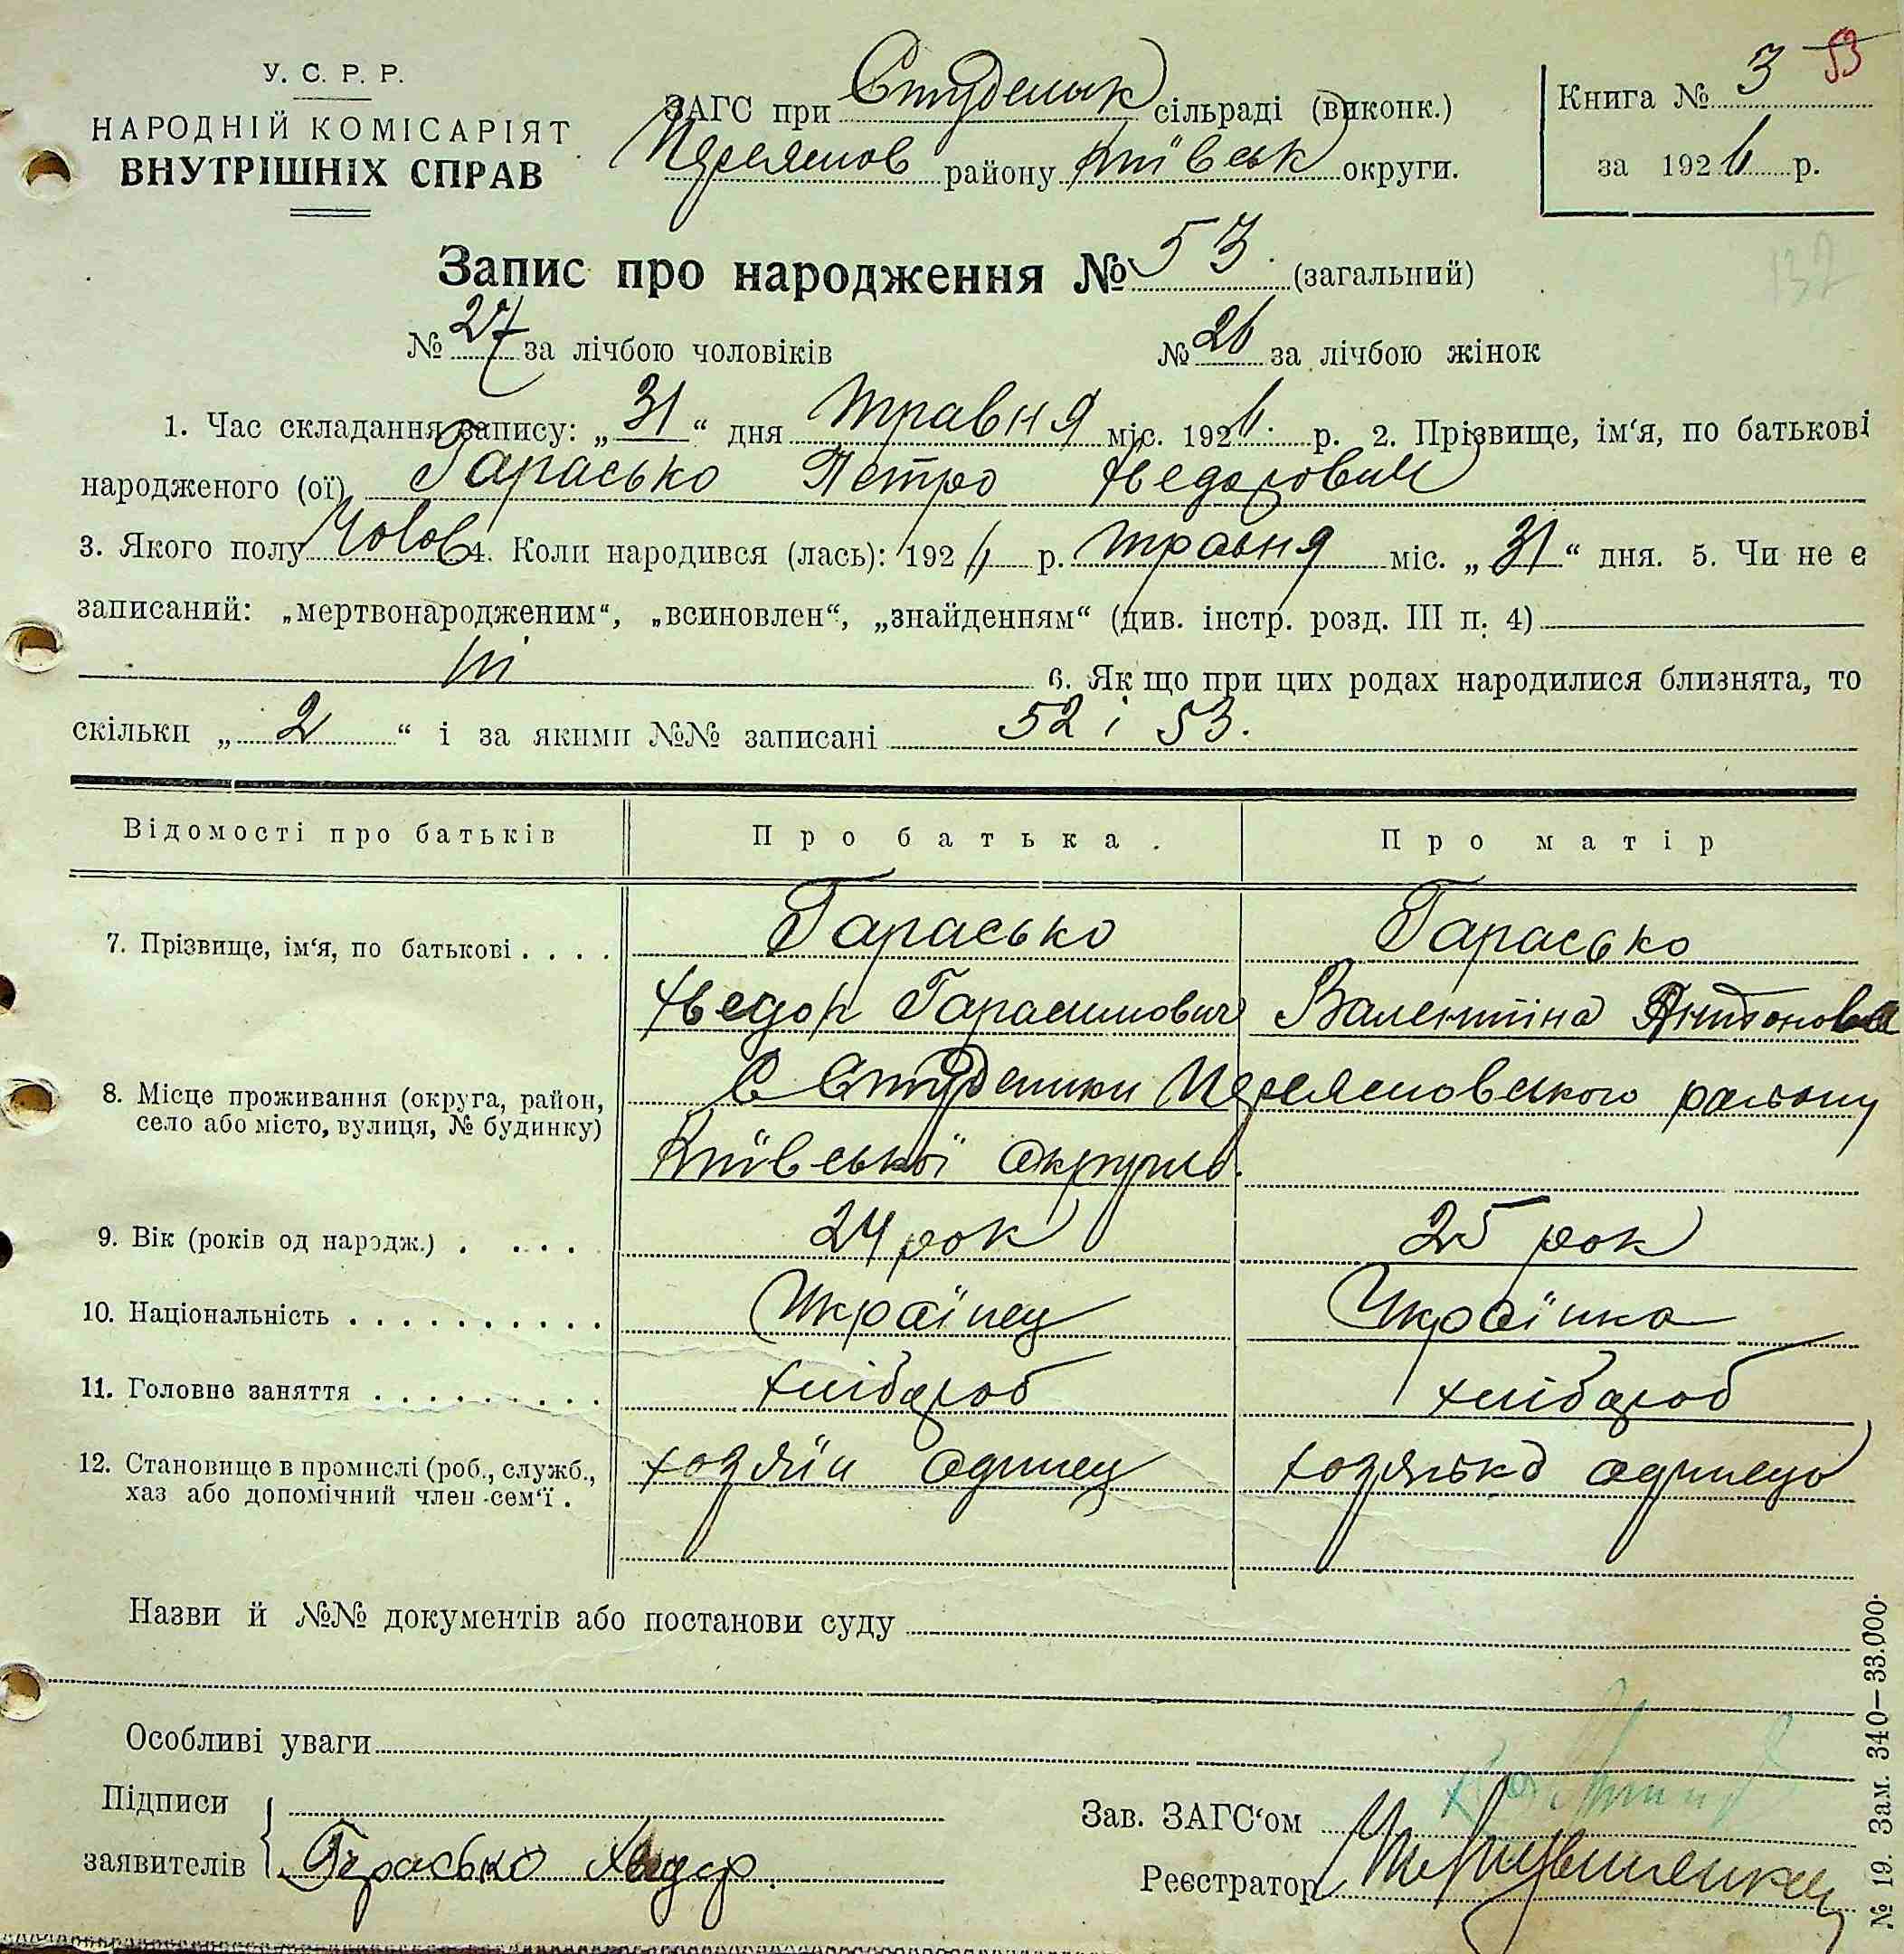 У. С. Р. Р.
НАРОДНІЙ КОМІСАРІЯТ
ВНУТРІШНІХ СПРАВ
ЗАГС при Студеник сільраді (виконк.)
Переяслов району Київськ округи.
Книга № 3 53
за 1926 р.
Запис про народження № 53. (загальний)
137
№ 27 за лічбою чоловіків № 26 за лічбою жінок
1. Час складання запису: „31“ дня травня міс. 1926. р. 2. Прізвище, ім'я, по батькові
народженого (ої) Гарасько Петро Хведорович
3. Якого полу Чолов 4. Коли народився (лась): 1926 р. травня міс. „31“ дня. 5. Чи не є
записаний: „мертвонародженим“, „всиновлен“, „знайденням“ (див. інстр. розд. III п. 4)
Ні 6. Як що при цих родах народилися близнята, то
скільки „2“ і за якими №№ записані 52 і 53.
Відомості про батьків Про батька. Про матір
7. Прізвище, ім'я, по батькові . . . . Гарасько Гарасько
Хведор Гарасимович Валентіна Антонова
8. Місце проживання (округа, район, село або місто, вулиця, № будинку) С Студеники Переясловського району
Київської округи.
9. Вік (років од народж.) . . . . 24 рок 25 рок
10. Національність . . . . . . . . . . Українец Українка
11. Головне заняття . . . . . . . . . хлібороб хлібороб
12. Становище в промислі (роб., служб., хазяїн одинец хозяйка одинец
хаз або допомічний член сем'ї .
Назви й №№ документів або постанови суду
Особливі уваги
Підписи
заявителів Гарасько Хведор.
Зав. ЗАГС'ом
Реєстратор
№ 19. Зам. 340—33.000.